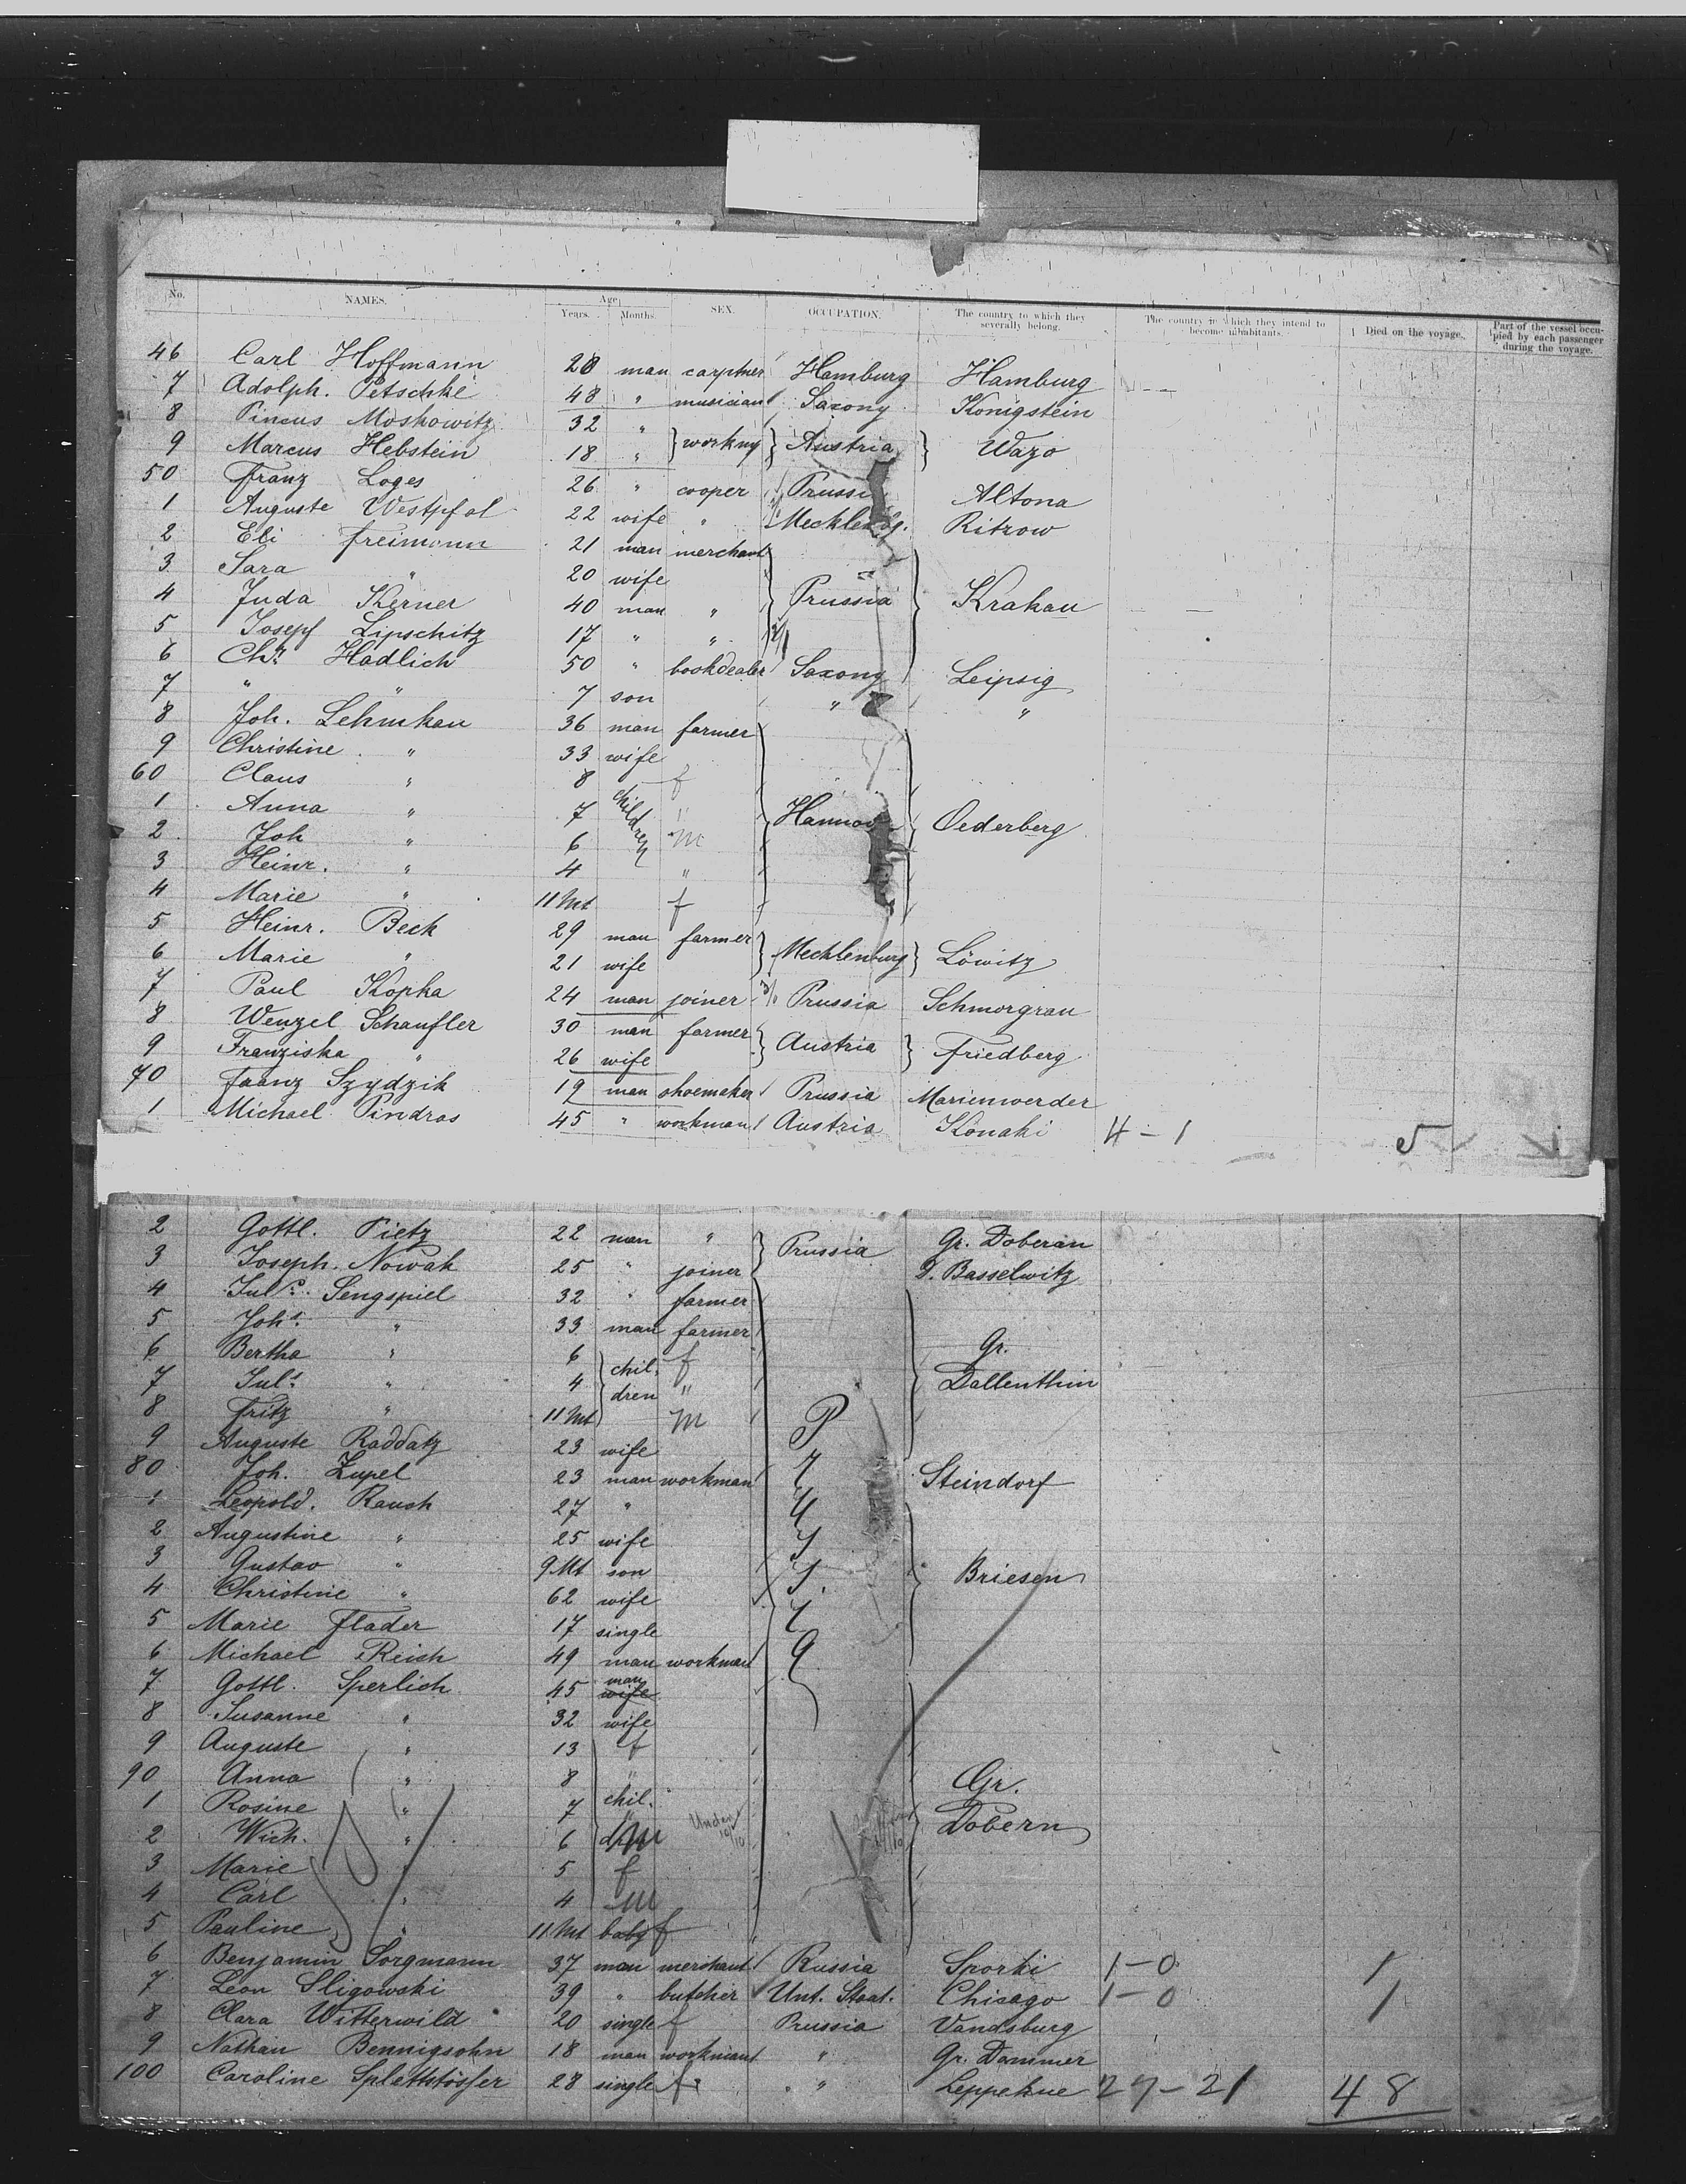 No. NAMES. Age Years. Months. SEX. OCCUPATION. The country to which they severally belong. The country in which they intend to become inhabitants. Died on the voyage. Part of the vessel occupied by each passenger during the voyage.
46 Carl Hoffmann 28 man carptner Hamburg Hamburg
7 Adolph. Petschke 48 " musician Saxony Königstein
8 Pincus Moskowitz 32 "
9 Marcus Hebstein 18 " workmg Austria Wazo
50 Franz Loges 26 " cooper Prussi Altona
1 Auguste Westpfal 22 wife " Mecklenbg. Ritzow
2 Eli Freimann 21 man merchant
3 Sara " 20 wife
4 Juda Kerner 40 man " Prussia Krakau
5 Josepf Lipschitz 17 " "
6 Chr. Hadlich 50 " bookdealer Saxony Leipsig
7 " " 7 son " "
8 Joh. Lehmkau 36 man farmer
9 Christine " 33 wife
60 Claus " 8 f
1 Anna " 7 children " Hannov Oederberg
2 Joh " 6 m
3 Heinr. " 4 "
4 Marie " 11 Mt f
5 Heinr. Beck 29 man farmer
6 Marie " 21 wife Mecklenburg Löwitz
7 Paul Kopka 24 man joiner Prussia Schmorgrau
8 Wenzel Schaufler 30 man farmer
9 Franziska " 26 wife Austria Friedberg
70 Franz Szydzik 19 man shoemaker Prussia Marienwerder
1 Michael Pindras 45 " workman Austria Konaki 4-1 5
2 Gottl. Pietz 22 man " Prussia Gr. Doberan
3 Joseph. Nowak 25 " joiner D. Basselwitz
4 Juls. Sengspiel 32 " farmer
5 Johs. " 33 man farmer Gr.
6 Bertha " 6 chil. f
7 Juls. " 4 dren " Dallenthin
8 Fritz " 11 Mt m
9 Auguste Raddatz 23 wife
80 Joh. Zupel 23 man workman Steindorf
1 Leopold. Raush 27 "
2 Augustine " 25 wife
3 Gustav " 9 Mt son Briesen
4 Christine " 62 wife
5 Marie Flader 17 single
6 Michael Reich 49 man workman
7 Gottl. Sperlich 45 man wife
8 Susanne " 32 wife
9 Auguste " 13 f
90 Anna " 8 " Gr.
1 Rosine " 7 chil. Dobern
2 Wich. " 6 m Under
3 Marie " 5 f
4 Carl " 4 m
5 Pauline " 11 Mt baby f
6 Benjamin Sorgmann 37 man merchant Russia Sporki 1-0 1
7 Leon Sligowski 39 " butcher Unt. Staat. Chicago 1-0 1
8 Clara Witterwild 20 single f Prussia Vandsburg
9 Nathan Bennigsohn 18 man workman " Gr. Dammer
100 Caroline Splettstösser 28 single f " Leppekue 27-21 48